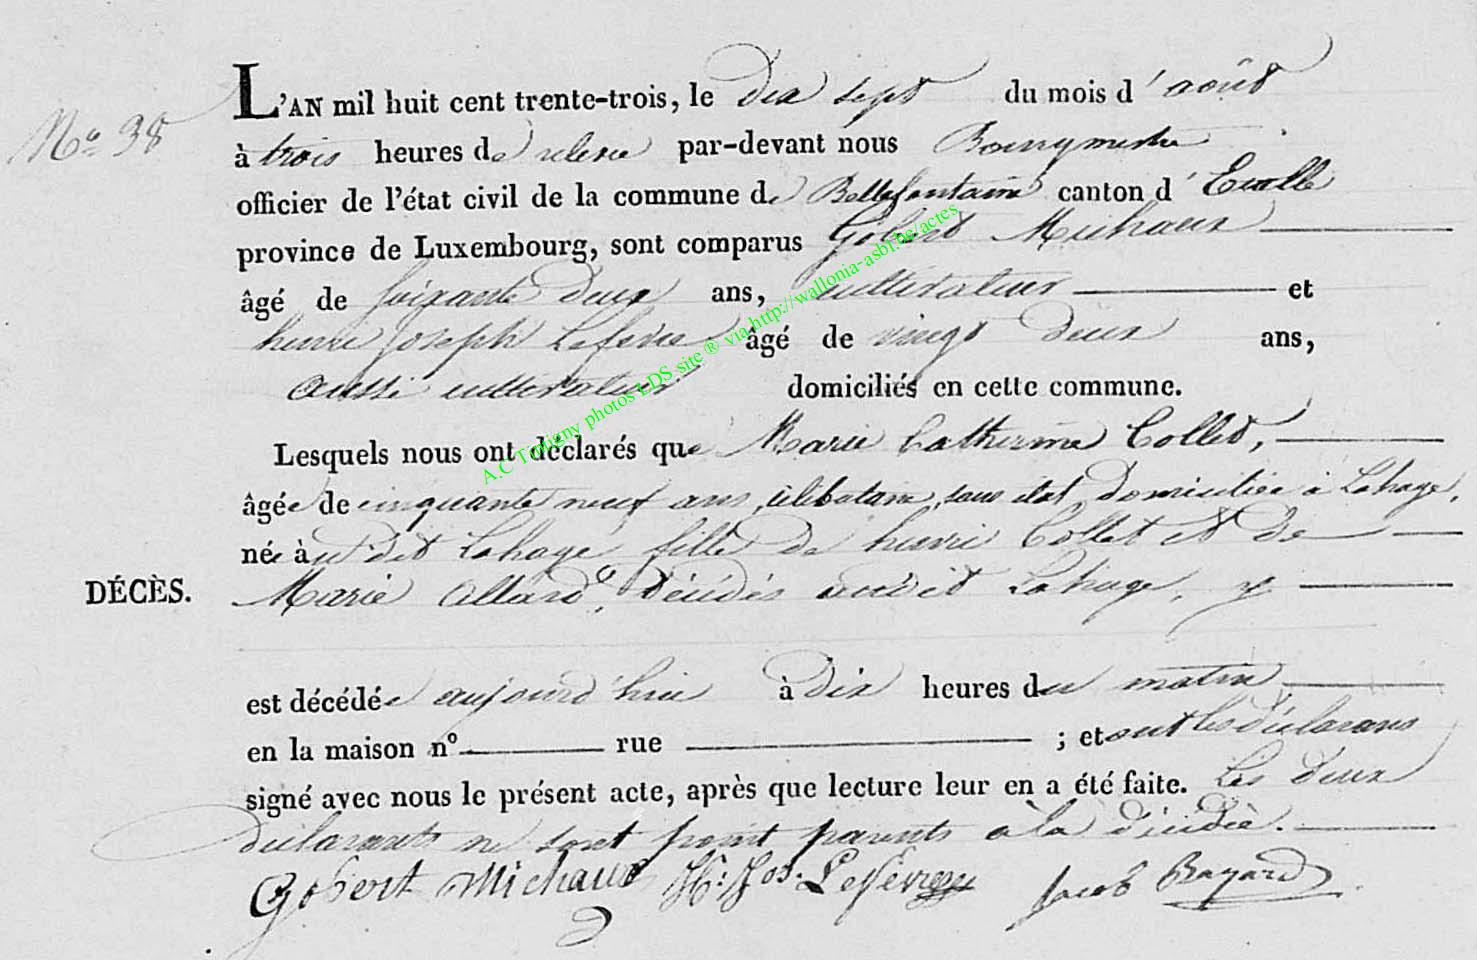 N.o 38
L'AN mil huit cent trente-trois, le dix sept du mois d'août
à trois heures de relevée par-devant nous Bourgmestre
officier de l'état civil de la commune de Bellefontaine canton d'Etalle
province de Luxembourg, sont comparus Gobert Michaux
âgé de soixante deux ans, cultivateur et
henri Joseph Lefevre âgé de vingt deux ans,
aussi cultivateur domiciliés en cette commune.
Lesquels nous ont déclarés que Marie Catherine Collet,
âgée de cinquante neuf ans, célibataire, sans état, domiciliée à Lahage,
née audit Lahage, fille de henri Collet et de
DÉCÈS. Marie Allard, décédés audit Lahage,
est décédée aujourd'hui à dix heures du matin
en la maison n° rue ; et ont les déclarans
signé avec nous le présent acte, après que lecture leur en a été faite. Les deux
déclarants ne sont point parents à la décédée.
Gobert Michaux H: Jos. Lefèvre Jacob Bayard
A.C Tintigny photos LDS site ® via http://wallonia-asbl.be/actes